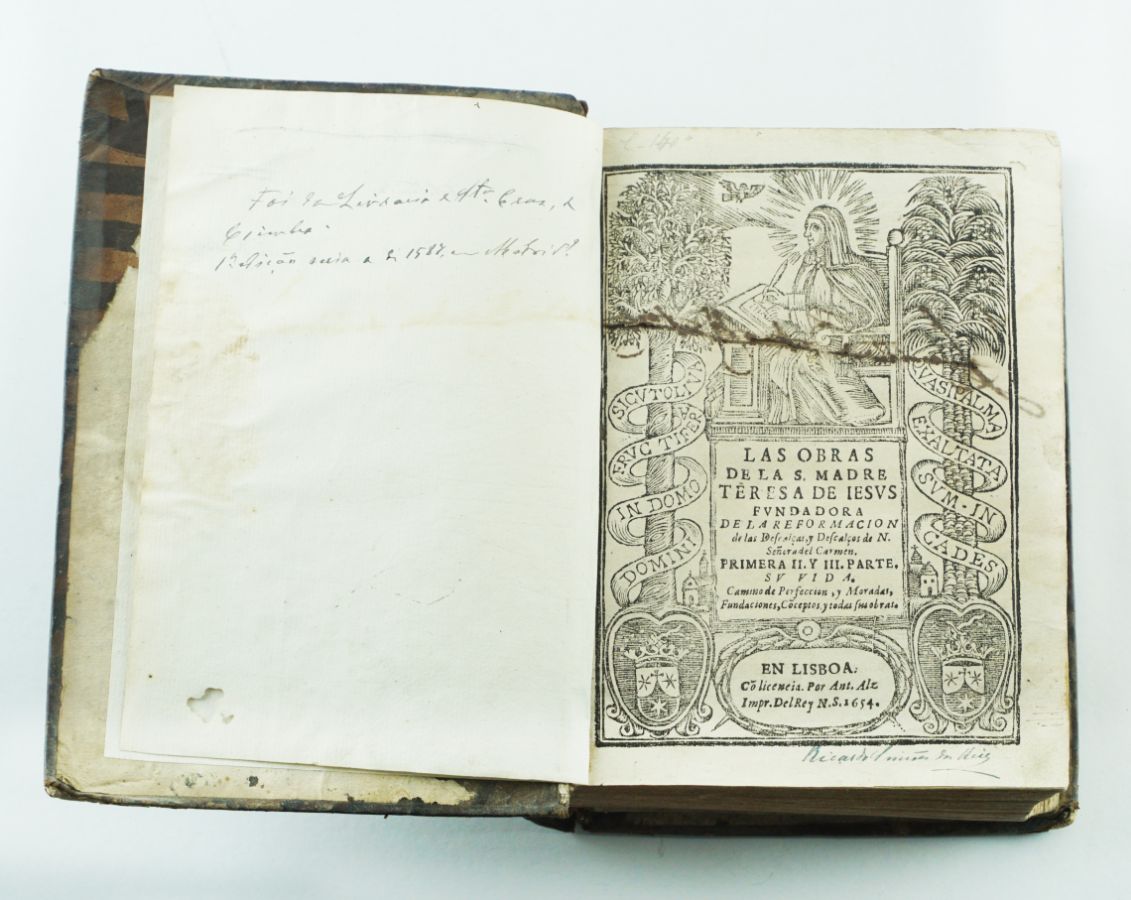 Foi da Livraria de Sta. Cruz, de
Coimbra.
1ª edição seria a de 1588, em Madrid?
SICVT OLIVA
FRVCTIFERA
IN DOMO
DOMINI
QVASI PALMA
EXALTATA
SVM · IN
CADES
LAS OBRAS
DE LA S. MADRE
TERESA DE IESVS
FVNDADORA
DE LA REFORMACION
de las Descalças, y Descalços de N.
Señora del Carmen.
PRIMERA II. Y III. PARTE.
SV VIDA.
Camino de Perfeccion, y Moradas,
Fundaciones, Cõceptos, y todas sus obras.
EN LISBOA.
Cõ licencia. Por Ant. Alz
Impr. Del Rey N. S. 1654.
Ricardo